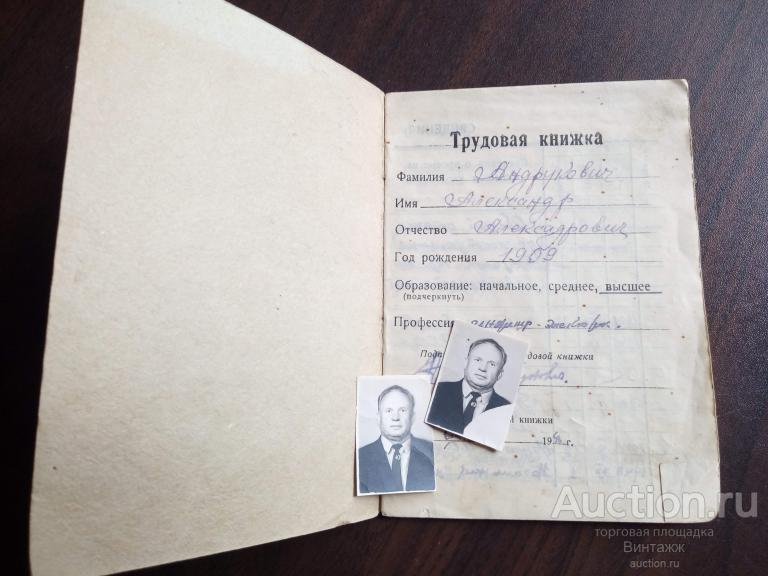 Трудовая книжка
Фамилия Андрукович
Имя Александр
Отчество Александрович
Год рождения 1909
Образование: начальное, среднее, высшее
(подчеркнуть)
Профессия инженер-электрик.
довой книжки
книжки
19 г.
Auction.ru
торговая площадка
Винтажж
auction.ru